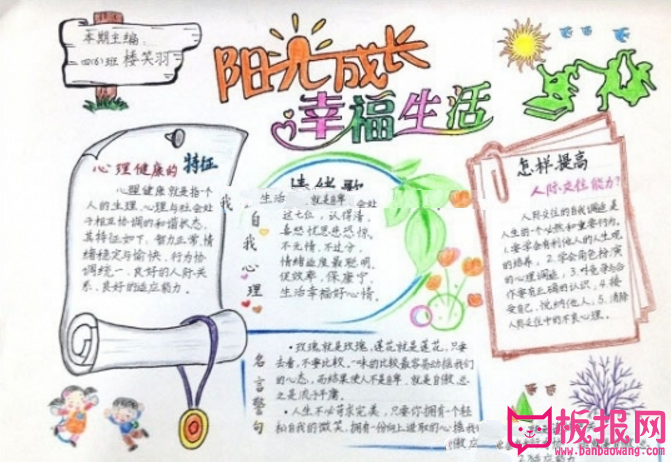 本期主编:
四(6)班 楼笑羽
阳光成长
幸福生活
心理健康的 特征
心理健康就是指个
人的生理、心理与社会处
于相互协调的和谐状态,
其特征如下:智力正常,情
绪稳定与愉快,行为协
调统一、良好的人际关
系、良好的适应能力。
我
自
我
心
理
生活
就是自卑
会处
这七位,认得清,
喜怒忧思悲恐惊,
不无情,不过分,
情绪适度最聪明。
促效率,保康宁,
生活幸福好心情。
怎样提高
人际交往能力?
人际交往的自我调适是
人生的一个必然和重要行为。
1.要学会有利他人的人生观
的培养;2.学会角色扮演
的心理调适;3.对竞争与合
作要有正确的认识;4.接
受自己,悦纳他人;5.消除
人际交往中的不良心理。
名
言
警
句
•玫瑰就是玫瑰,莲花就是莲花,只要
去看,不要比较。一味的比较最容易动摇我们
的心态,而结果使人不是自卑,就是自傲,总
之是流于平庸。
•人生不必苛求完美,只要你拥有一个轻
松自我的微笑,拥有一份向上进取的心
板报网
www.banbaowang.com